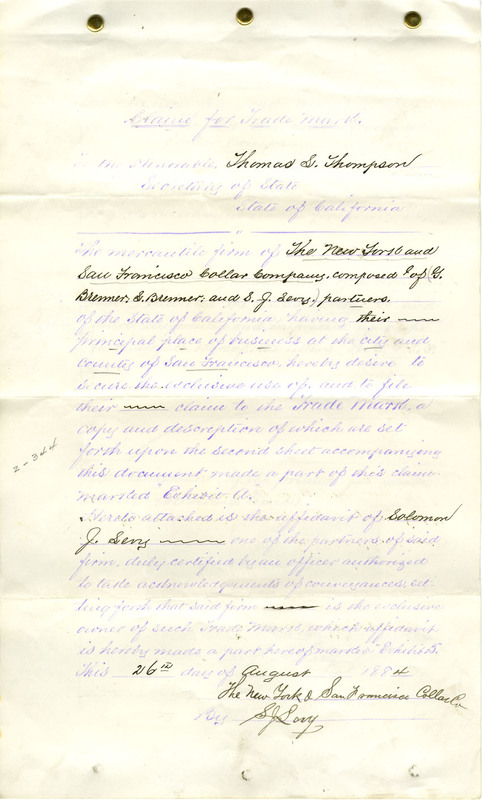 Claim for Trade Mark.
To the Honorable, Thomas L. Thompson
Secretary of State
State of California
The mercantile firm of The New York and
San Francisco Collar Company, composed of (G.
Brenner, S. Brenner, and S. J. Levy,) partners.
of the State of California, having their
principal place of business at the city and
County of San Francisco, hereby desire to
secure the exclusive use of, and to file
their claim to the Trade Mark, a
copy and description of which are set
forth upon the second sheet accompanying
this document made a part of this claim
marked "Exhibit A".
Hereto attached is the affidavit of Solomon
J. Levy one of the partners of said
firm, duly certified by an officer authorized
to take acknowledgments of conveyances, set-
ting forth that said firm is the exclusive
owner of such Trade Mark, which affidavit
is hereby made a part hereof marked Exhibit B.
This 26th day of August 1884
The New York & San Francisco Collar Co
By S J Levy
2-344